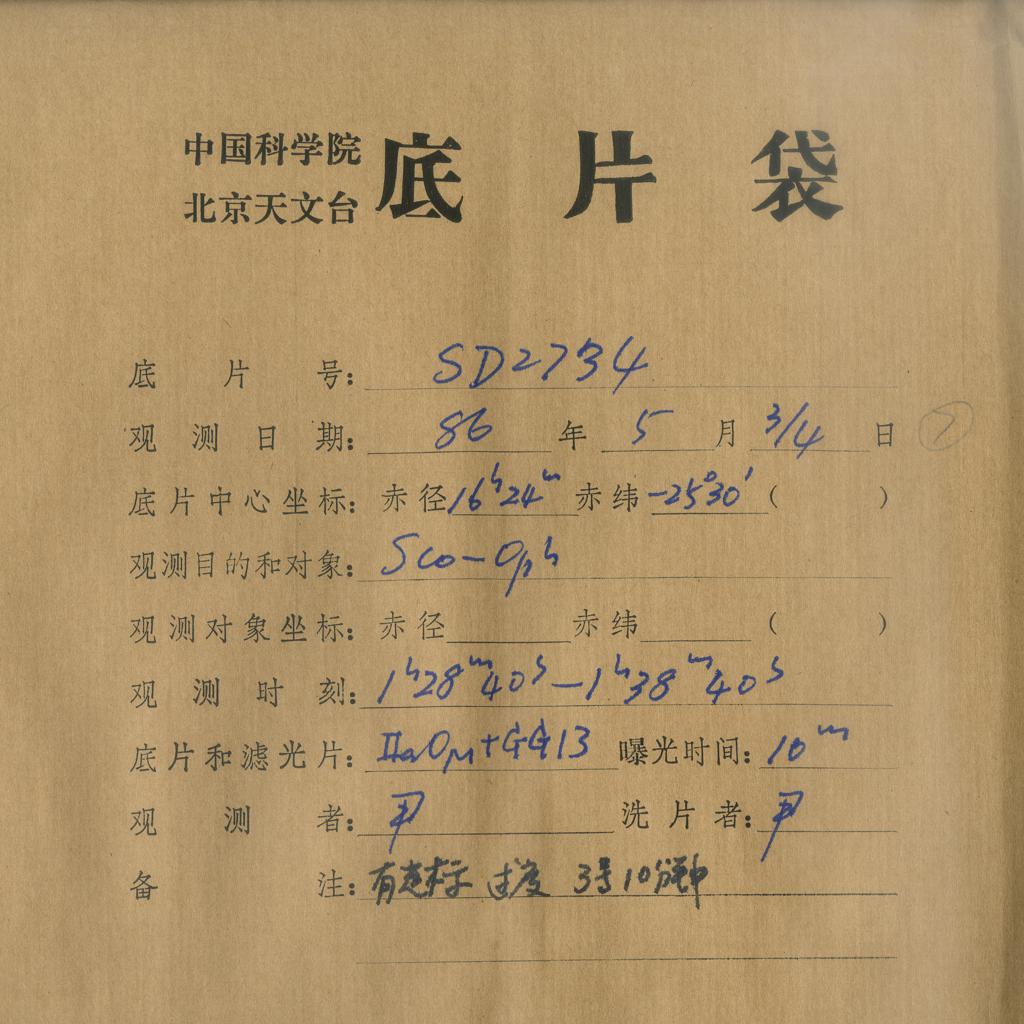 中国科学院
北京天文台
底片袋
底片号: SD2734
观测日期: 86年5月3/4日 7
底片中心坐标: 赤径16ʰ24ᵐ赤纬-25°30′( )
观测目的和对象: Sco-Oph
观测对象坐标: 赤径 赤纬 ( )
观测时刻: 1ʰ28ᵐ40ˢ-1ʰ38ᵐ40ˢ
底片和滤光片: IIaO+GG13 曝光时间: 10ᵐ
观测者: 尹 洗片者: 尹
备注: 有 标 过度 3号10分钟